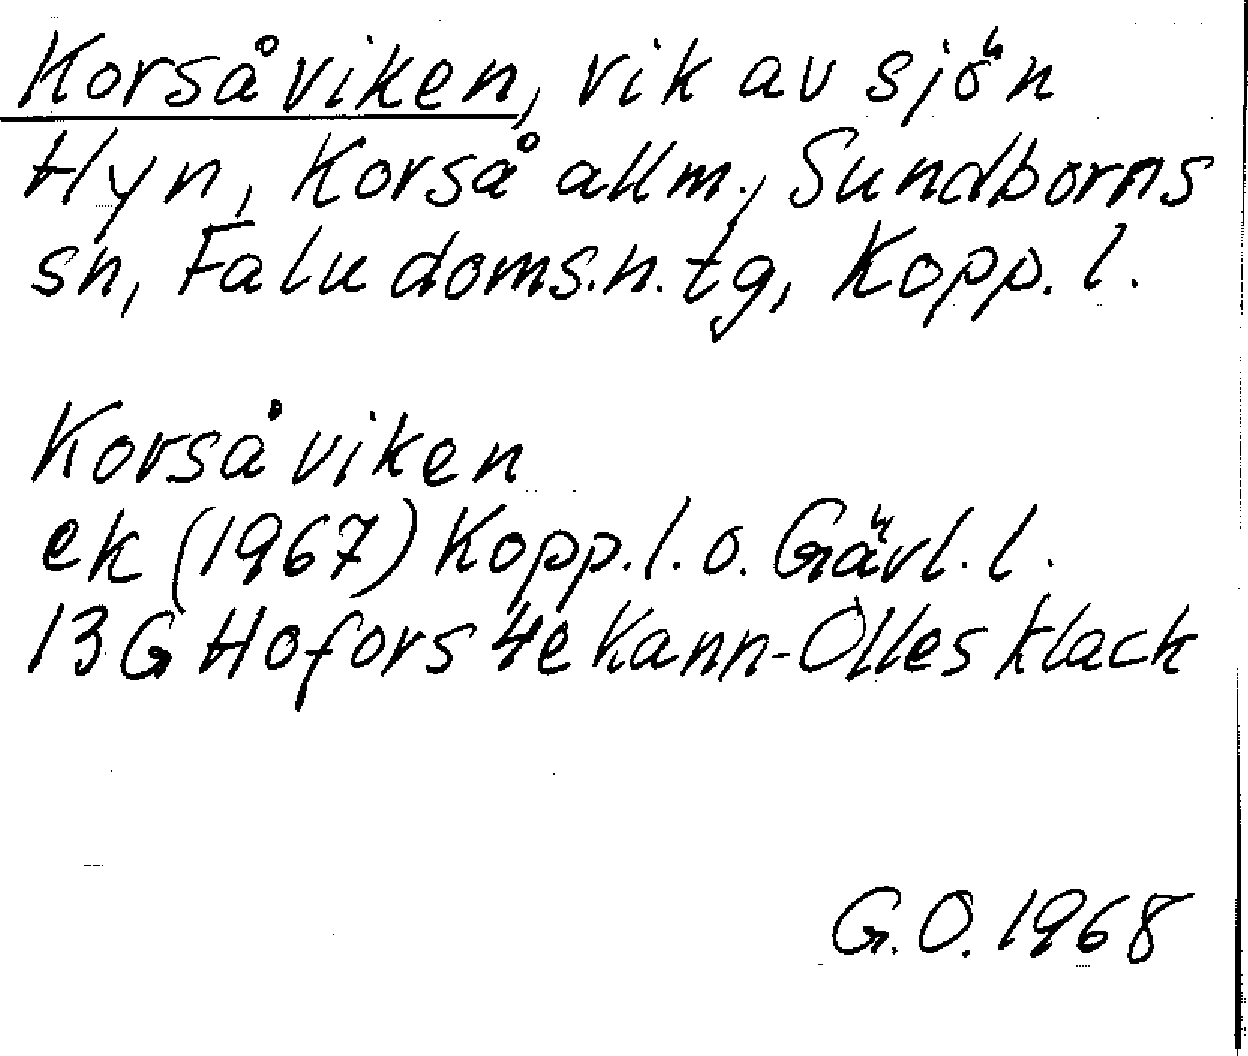 Korsåviken, vik av sjön
Hyn, Korså allm., Sundborns
sn, Falu doms.n. tg, Kopp. l.
Korsåviken
ek (1967) Kopp. l. o. Gävl. l.
13 G Hofors 4e Kann-Olles klack
G.O. 1968